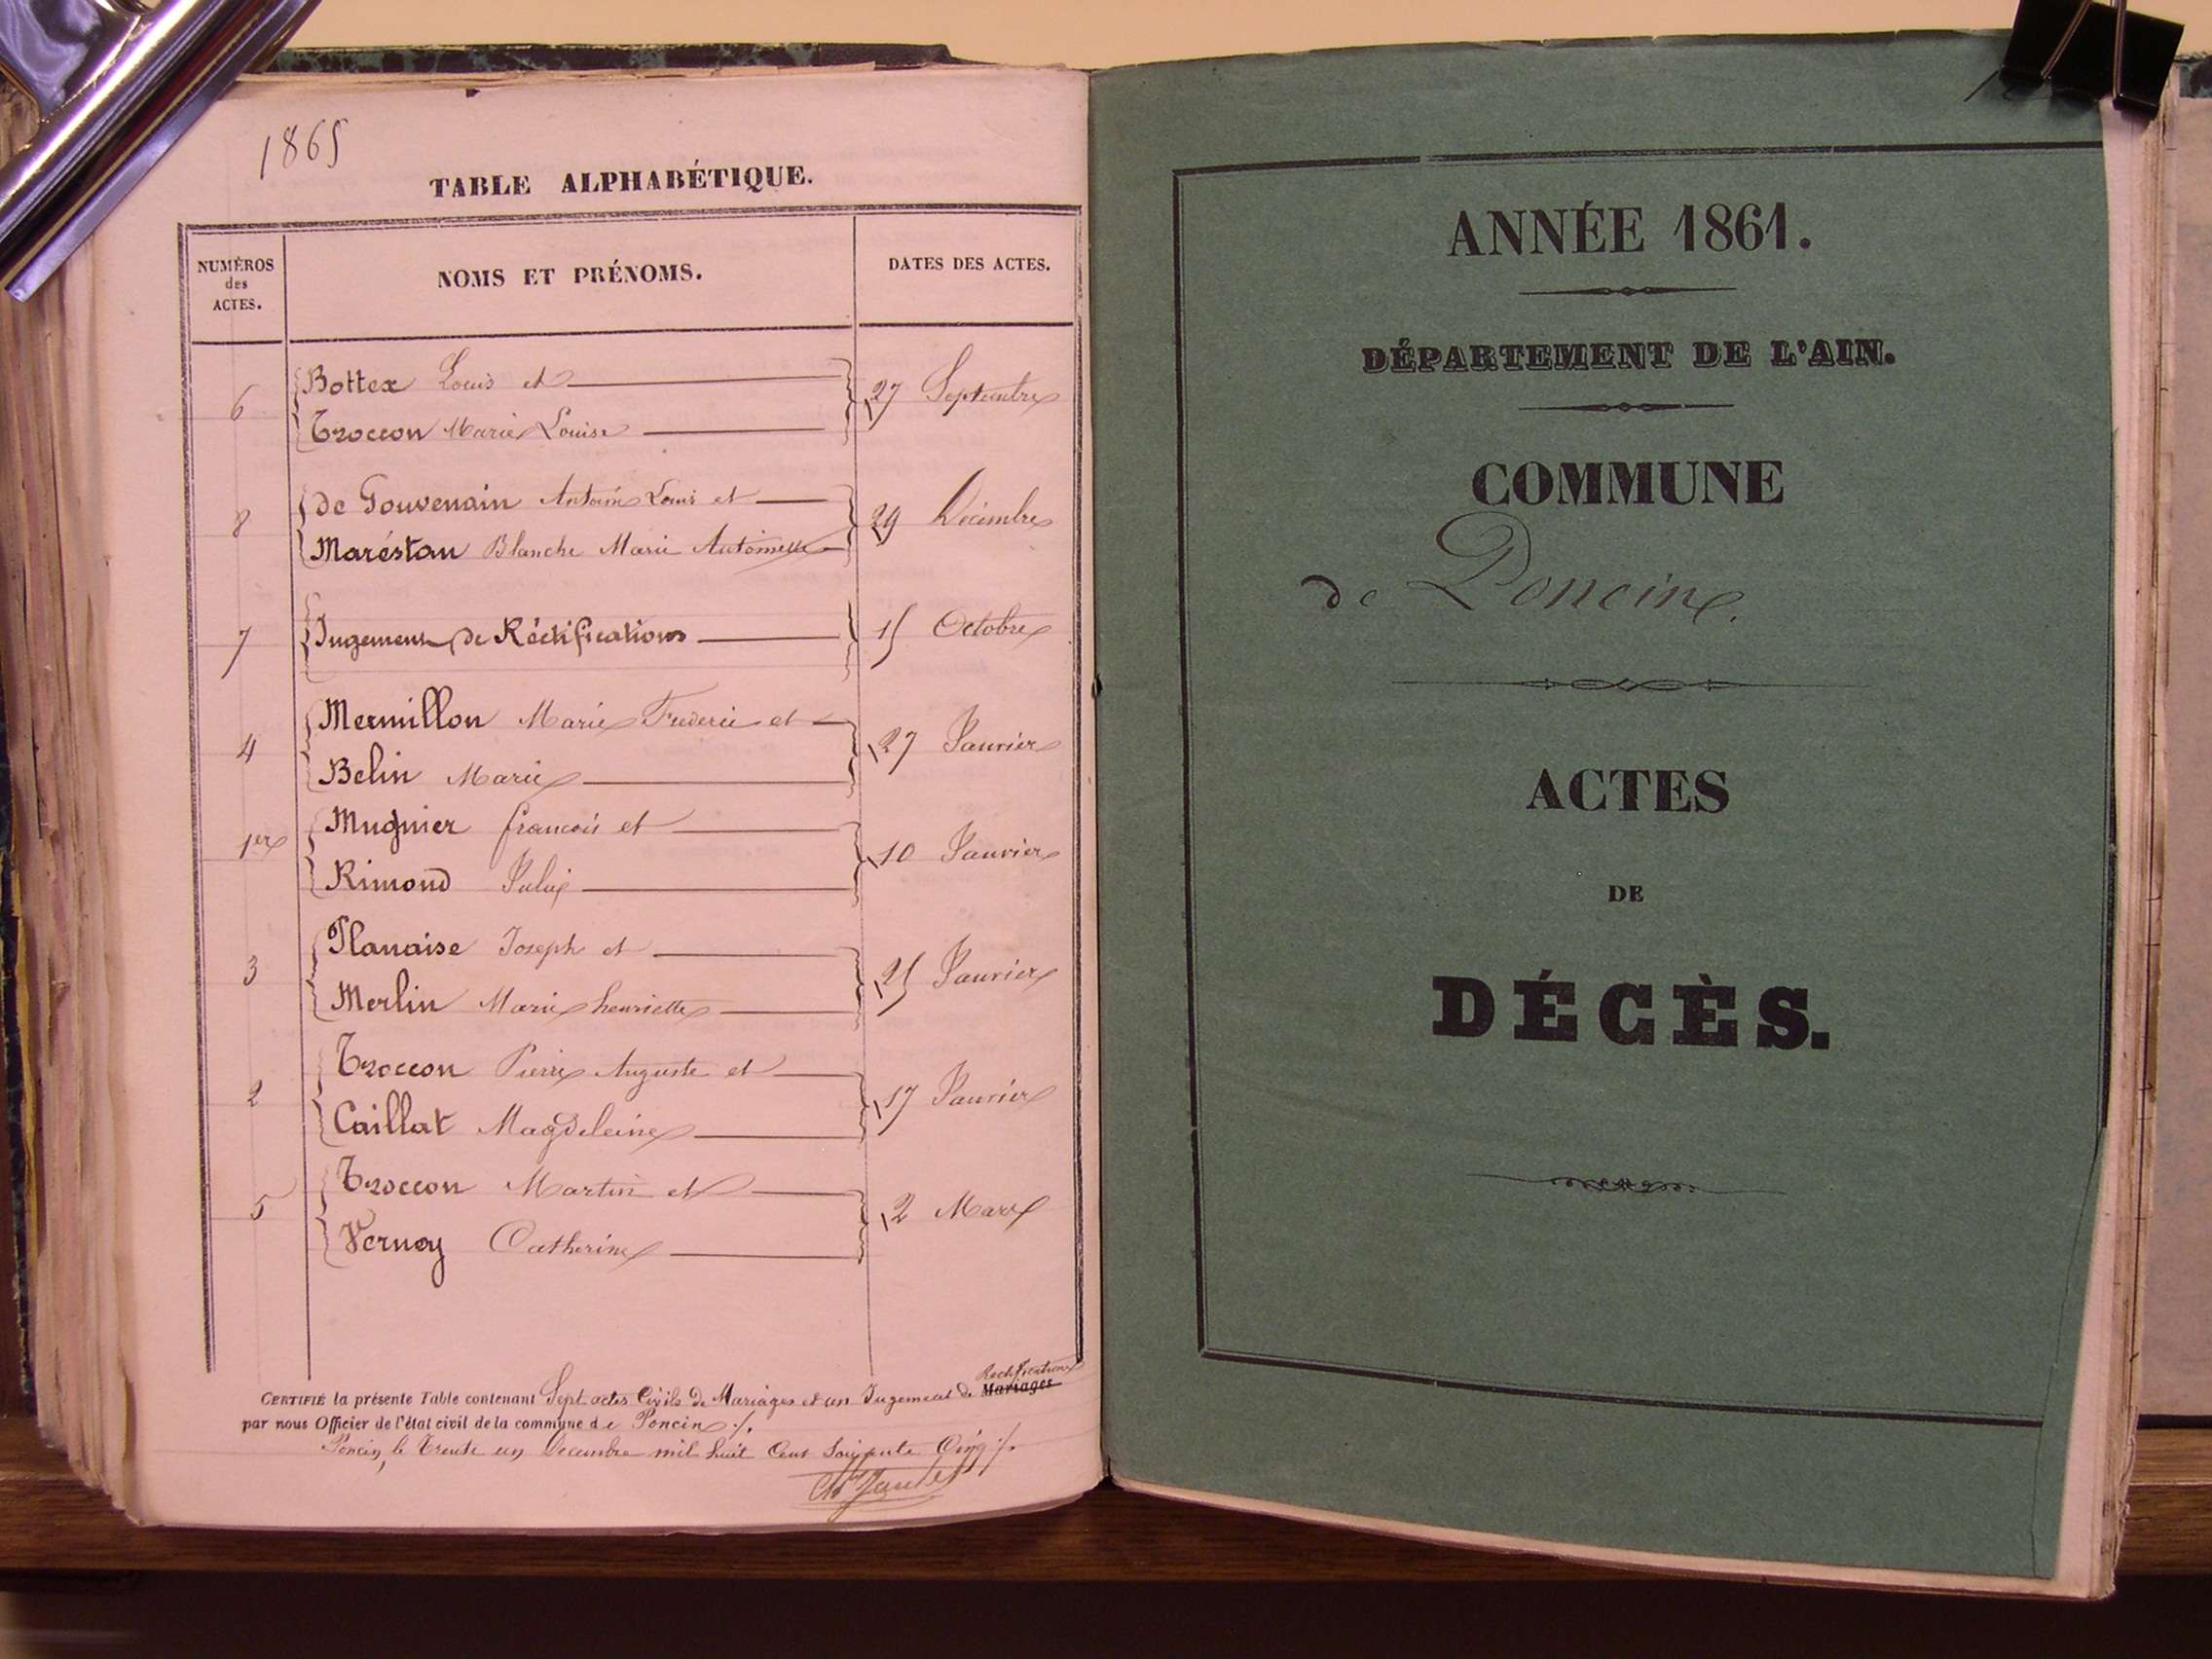 1865
TABLE ALPHABÉTIQUE.
NUMÉROS
des
ACTES.
NOMS ET PRÉNOMS.
DATES DES ACTES.
6
Bottex Louis et
Troccon Marie Louise
27 Septembre
8
de Gouvenain Antoine Louis et
Maréstan Blanche Marie Antoinette
29 Décembre
7
Jugement de Réctifications
15 Octobre
4
Mermillon Marie Frederic et
Belin Marie
27 Janvier
1er
Mugnier francois et
Rimond Julie
10 Janvier
3
Planaise Joseph et
Merlin Marie henriette
25 Janvier
2
Troccon Pierre Auguste et
Caillat Magdeleine
17 Janvier
5
Troccon Martin et
Vernoy Catherine
2 Mars
Rectifications
CERTIFIÉ la présente Table contenant Sept actes Civils de Mariages et un Jugement de Mariages
par nous Officier de l'état civil de la commune de Poncin ./.
Poncin, le Trente un Decembre mil huit Cent Soixante Cinq ./.
ANNÉE 1861.
DÉPARTEMENT DE L'AIN.
COMMUNE
de Poncin
ACTES
DE
DÉCÈS.